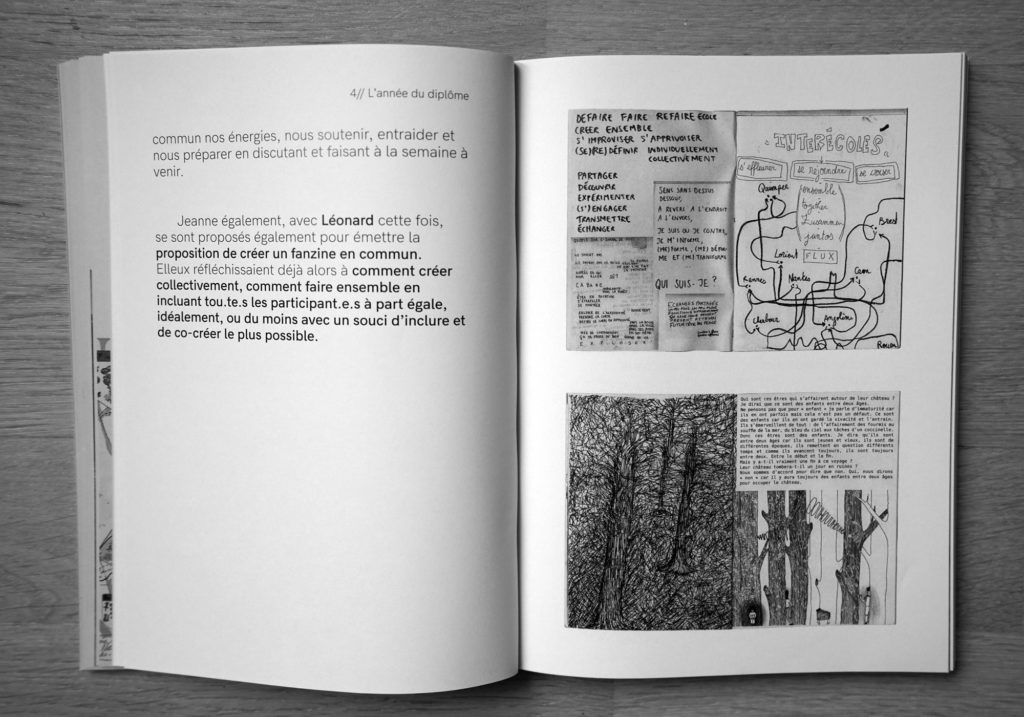 4// L'année du diplôme
commun nos énergies, nous soutenir, entraider et
nous préparer en discutant et faisant à la semaine à
venir.
Jeanne également, avec Léonard cette fois,
se sont proposés également pour émettre la
proposition de créer un fanzine en commun.
Elleux réfléchissaient déjà alors à comment créer
collectivement, comment faire ensemble en
incluant tou.te.s les participant.e.s à part égale,
idéalement, ou du moins avec un souci d'inclure et
de co-créer le plus possible.
DÉFAIRE FAIRE REFAIRE ÉCOLE
CRÉER ENSEMBLE
S'IMPROVISER S'APPRIVOISER
(SE)(RE)DÉFINIR INDIVIDUELLEMENT
COLLECTIVEMENT
PARTAGER
DÉCOUVRIR
EXPÉRIMENTER
(S')ENGAGER
TRANSMETTRE
ÉCHANGER
SENS SANS DESSUS
DESSOUS,
A REVERS A L'ENDROIT
A L'ENVERS,
JE SUIS OU JE CONTRE,
JE M'INFORME,
ME ET (ME) TRANSFORME
QUI SUIS-JE ?
CABANE
EXPLOSER
INTERÉCOLES
s'effleurer
se rejoindre
se croiser
Quimper
ensemble
together
Zusammen
juntos
FLUX
Brest
Lorient
Rennes
Nantes
Caen
Angoulême
Rouen
Qui sont ces êtres qui s'affairent autour de leur château ?
Je dirai que ce sont des enfants entre deux âges.
Ne pensons pas que pour « enfant » je parle d'immaturité car
ils en ont parfois mais cela n'est pas un défaut. Ce sont
des enfants car ils en ont gardé la vivacité et l'entrain.
Ils s'émerveillent de tout : de l'affairement des fourmis au
souffle de la mer, du bleu du ciel aux tâches d'un coccinelle.
Donc ces êtres sont des enfants. Je dirai qu'ils sont
entre deux âges car ils sont jeunes et vieux, ils sont de
différentes époques, ils remettent en question différents
temps et comme ils avancent toujours, ils sont toujours
entre deux. Entre le début et la fin.
Mais y a-t-il vraiment une fin à ce voyage ?
Leur château tombera-t-il un jour en ruines ?
Nous sommes d'accord pour dire que non. Oui, nous dirons
« non » car il y aura toujours des enfants entre deux âges
pour occuper le château.